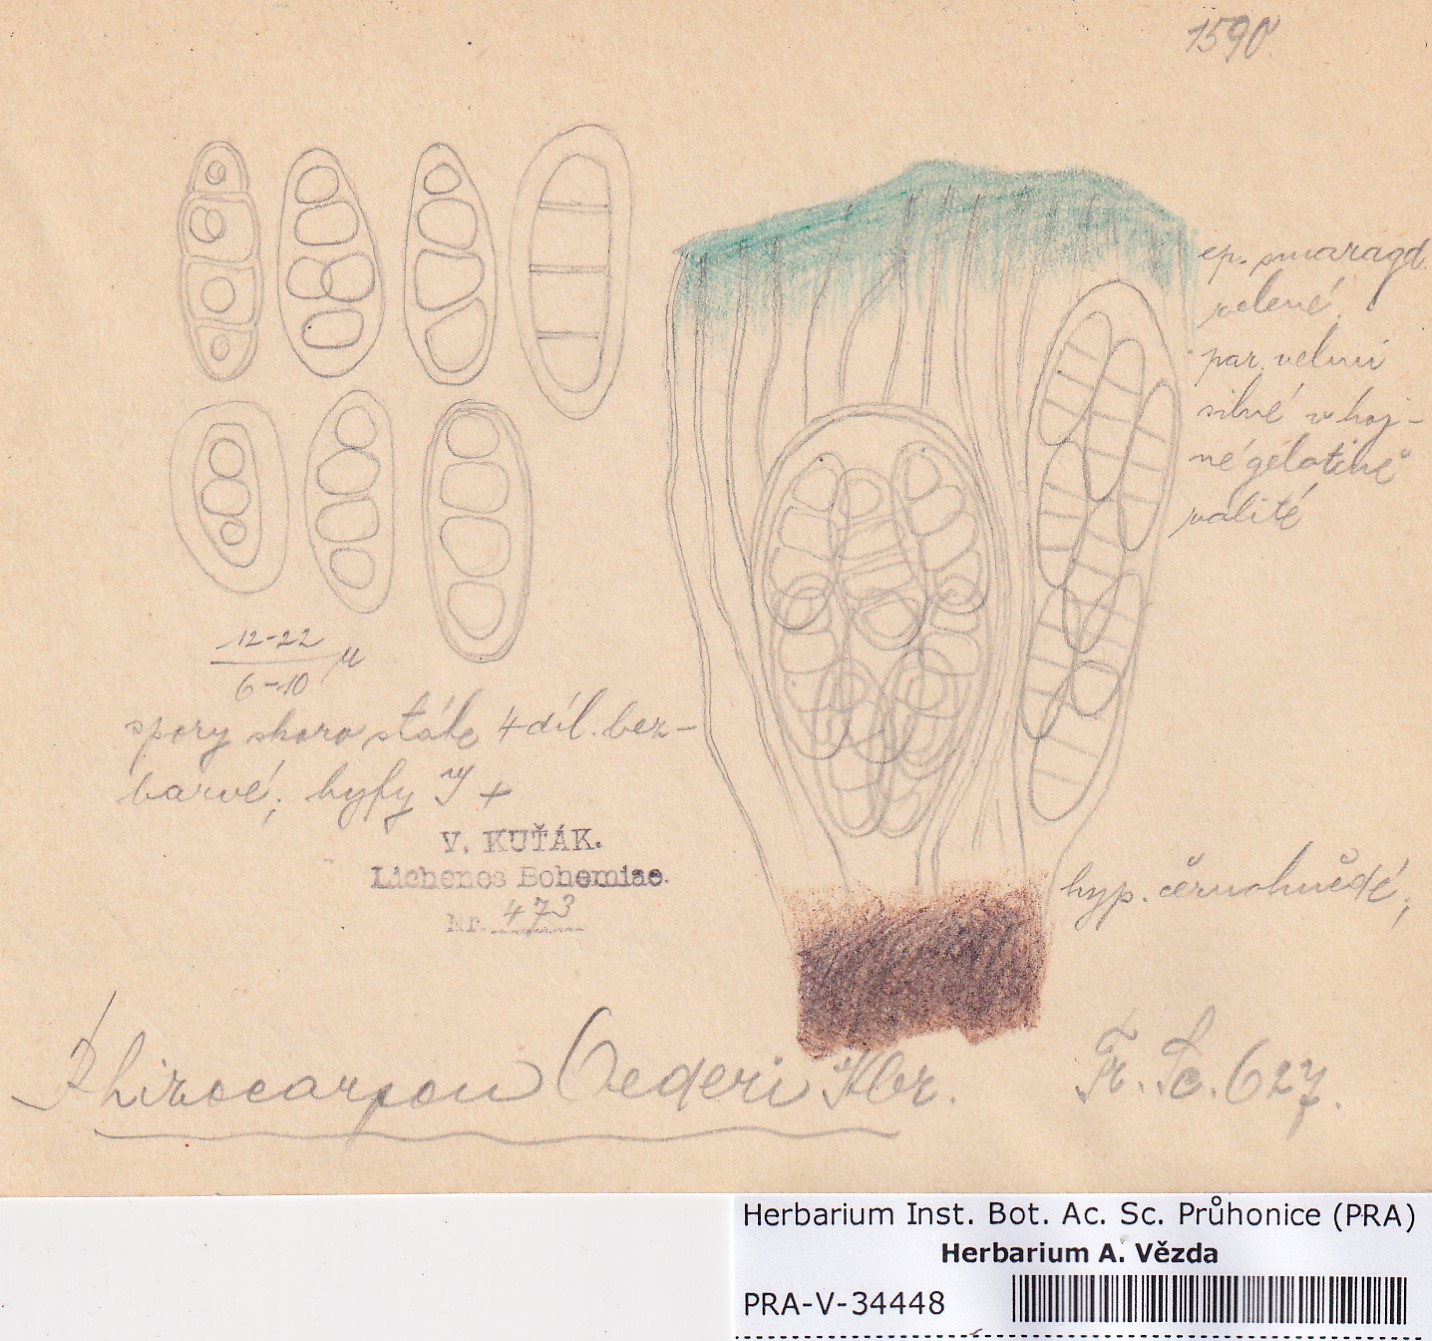 1590
ep. smaragd.
zelené.
par. velmi
silné v haj-
né gelatině
zalité
12-22
6-10 μ
spory skoro stále 4 díl. bez-
barvé; hyfy J +
V. KUŤÁK.
Lichenes Bohemiae.
Nr. 473
hyp. černohnědé;
Rhizocarpon Oederi Kbr. Fr. Sc. 627.
Herbarium Inst. Bot. Ac. Sc. Průhonice (PRA)
Herbarium A. Vězda
PRA-V-34448